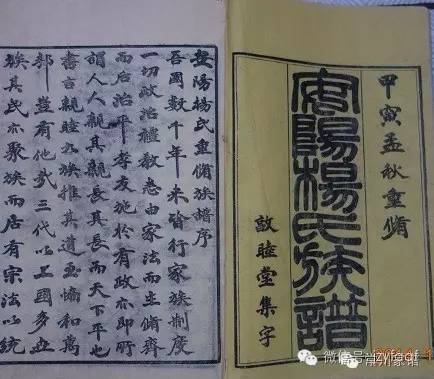 甲寅孟秋重脩
安陽楊氏族譜
敦睦堂集字
安陽楊氏重脩族譜序
吾國數千年來皆行家族制度
一切政治禮教悉由家法而生脩齊
而后治平孝友施於有政亦即所
謂人人親其親長其長而天下平也
書言親睦九族推其道至協和萬
邦豈有他哉三代以上國多世
族其民亦聚族而居有宗法以統
微信号
常州家谱